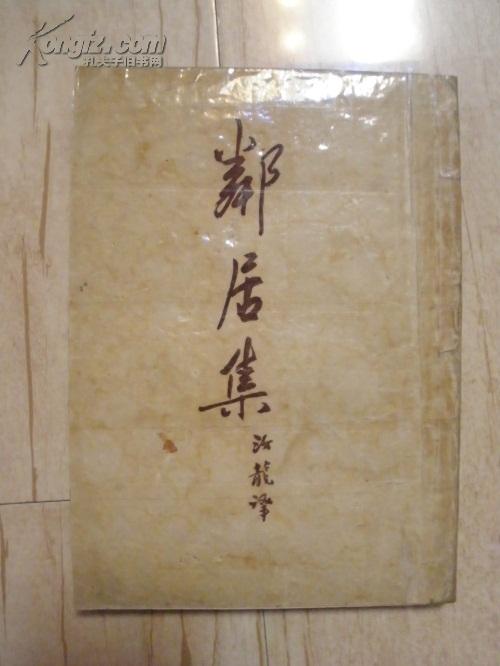 Kongfz.com
孔夫子旧书网
鄰居集
汝龍譯